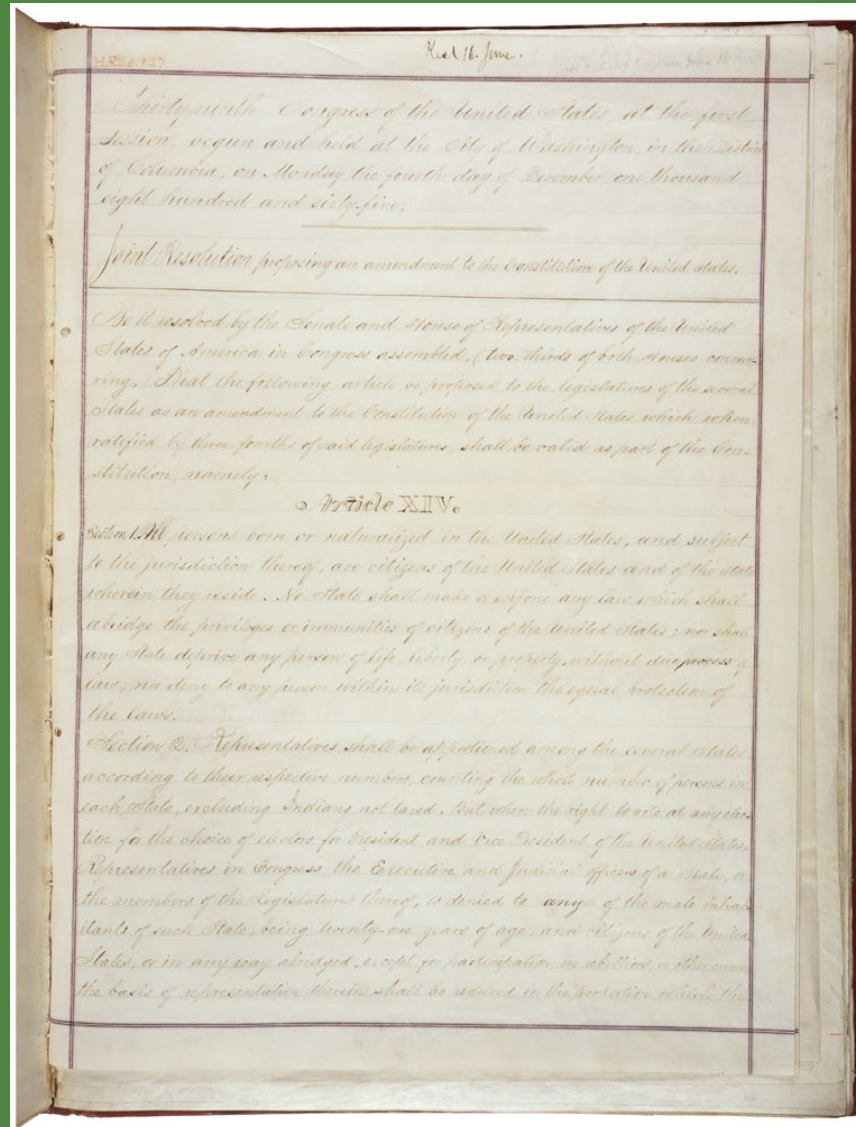 H.Res. 127
Recd 16. June.
Thirty-ninth Congress of the United States, at the first
Session, begun and held at the City of Washington, in the District
of Columbia, on Monday the fourth day of December, one thousand
eight hundred and sixty-five.
Joint Resolution proposing an amendment to the Constitution of the United States.
Be it resolved by the Senate and House of Representatives of the United
States of America in Congress assembled, (two-thirds of both Houses concur-
ring,) That the following article be proposed to the legislatures of the several
States as an amendment to the Constitution of the United States, which, when
ratified by three-fourths of said legislatures, shall be valid as part of the Con-
stitution, namely:
Article XIV.
Section 1. All persons born or naturalized in the United States, and subject
to the jurisdiction thereof, are citizens of the United States and of the State
wherein they reside. No State shall make or enforce any law which shall
abridge the privileges or immunities of citizens of the United States; nor shall
any State deprive any person of life, liberty, or property, without due process of
law; nor deny to any person within its jurisdiction the equal protection of
the laws.
Section 2. Representatives shall be apportioned among the several States
according to their respective numbers, counting the whole number of persons in
each State, excluding Indians not taxed. But when the right to vote at any elec-
tion for the choice of electors for President and Vice President of the United States,
Representatives in Congress, the Executive and Judicial officers of a State, or
the members of the Legislature thereof, is denied to any of the male inhab-
itants of such State, being twenty-one years of age, and citizens of the United
States, or in any way abridged, except for participation in rebellion, or other crime,
the basis of representation therein shall be reduced in the proportion which the